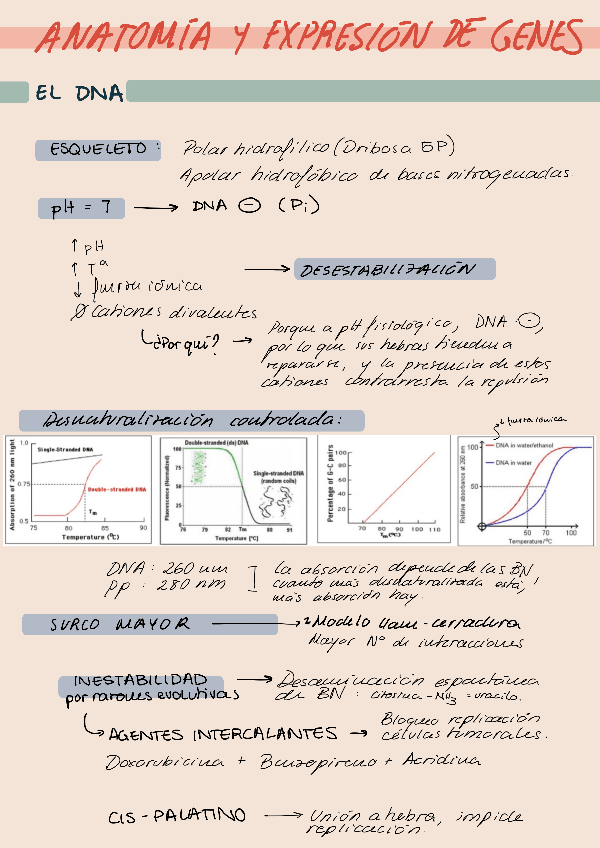 ANATOMÍA Y EXPRESIÓN DE GENES
EL DNA
ESQUELETO : Polar hidrofílico (Dribosa 5P)
Apolar hidrofóbico de bases nitrogenadas
pH = 7 → DNA ⊖ (Pi)
↑ pH
↑ Tª
↓ fuerza iónica
→ DESESTABILIZACIÓN
Ø Cationes divalentes
¿Por qué? → Porque a pH fisiológico, DNA ⊖,
por lo que sus hebras tienden a
repararse, y la presencia de estos
cationes contrarresta la repulsión
Desnaturalización controlada:
↓ fuerza iónica
Absorption of 260 nm light
1.0
0.75
0.5
Single-Stranded DNA
Double-stranded DNA
Tm
75 80 85 90
Temperature (ºC)
Fluorescence (Normalized)
100
50
0
Double-stranded (ds) DNA
Single-stranded DNA
(random coils)
76 79 82 Tm 88 91
Temperature (ºC)
Percentage of G-C pairs
100
80
60
40
20
70 80 90 100 110
Tm (ºC)
Relative absorbance at 260 nm
100
50
DNA in water/ethanol
DNA in water
50 70 100
Temperature/ºC
DNA : 260 nm
Pp : 280 nm
La absorción depende de las BN
cuanto más desnaturalizada está,
más absorción hay.
SURCO MAYOR → Modelo llave-cerradura
Mayor Nº de interacciones
INESTABILIDAD → Desaminación espontánea
por razones evolutivas de BN : citosina - NH3 = uracilo.
AGENTES INTERCALANTES → Bloqueo replicación
células tumorales.
Doxorubicina + Benzopireno + Acridina
CIS-PALATINO → Unión a hebra, impide
replicación.